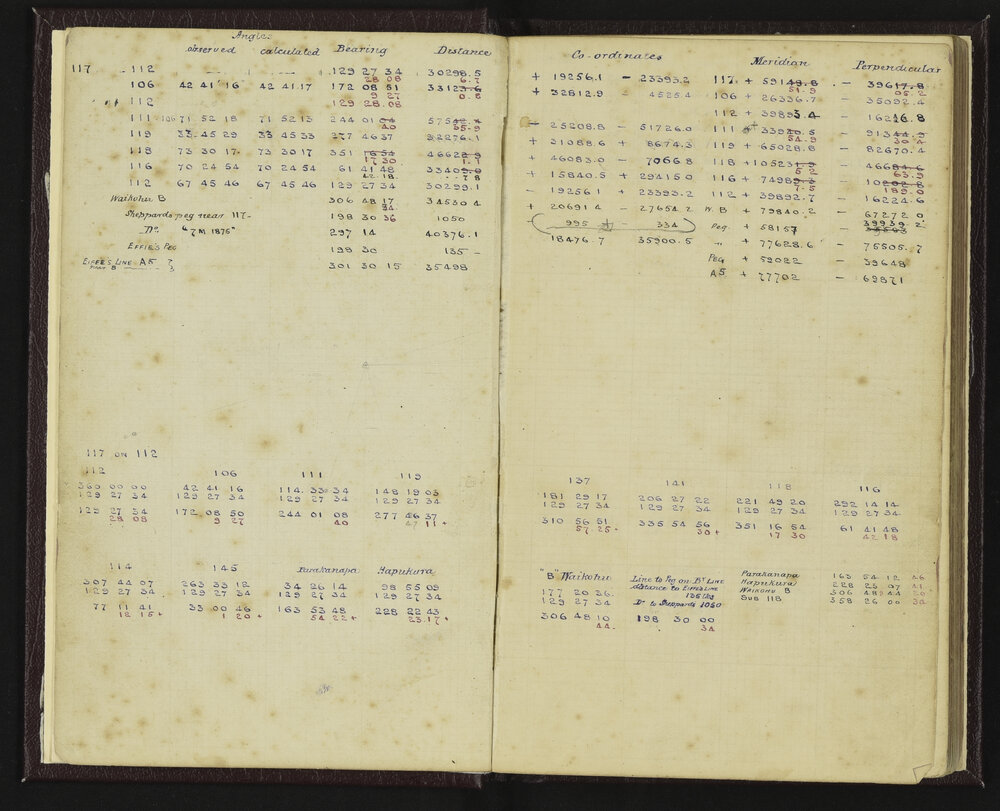 Angle
observed calculated Bearing Distance
117 112 129 27 34 30298.5
28 08 6.7
106 42 41 16 42 41 17 172 08 51 33123.6
9 27 0.8
112 129 28.08
111 106 71 52 18 71 52 13 244 01 04
40 35.9
119 33 45 29 33 45 33 277 46 37 32276.1
118 73 30 17 73 30 17 351 16 54 46622.9
17 30 1.
116 70 24 54 70 24 54 61 41 48 33409.0
42 18 7 8
112 67 45 46 67 45 46 129 27 34 30299.1
Waikohu B 306 48 17 34530 4
34
Sheppards peg near 117 198 30 36 1050
Do "7 M 1876" 297 14 40376.1
Effie's Peg 198 30 135 –
Effe's Line A5 ? 301 30 15 35498
Co-ordinates Meridian Perpendicular
+ 19256.1 – 23393.2 117 + 59148.8 – 39617.8
51.9 05.2
+ 32812.9 – 4525.4 106 + 26336.7 – 35092.4
112 + 39893.4 – 16216.8
– 25208.8 – 51726.0 111 + 33980.5 – 91344.9
54.9 30 4
+ 31088.6 + 8674.3 119 + 65028.8 – 82670.4
+ 46083.0 – 7066 8 118 + 105231.9 – 46684.6
5 2 63.9
+ 15840.5 + 29415 0 116 + 74989.3 – 10202.8
7.5 189.0
– 19256 1 + 23393.2 112 + 39892.7 – 16224.6
+ 20691 4 – 27654.2 W. B + 79840.2 – 67272 0
– 995 + 334 Peg + 58157 – 39939.2
18476.7 35900.5 " + 77628.6 – 75505.7
Peg + 59022 – 39648
A5 + 77702 – 69871
117 on 112
112 106 111 119
360 00 00 42 41 16 114 33 34 148 19 03
129 27 34 129 27 34 129 27 34 129 27 34
129 27 34 172 08 50 244 01 08 277 46 37
28 08 9 27 40 47 11 +
114 145 Parakanapa Hapukura
307 44 07 263 33 12 34 26 14 98 55 09
129 27 34 129 27 34 129 27 34 129 27 34
77 11 41 33 00 46 163 53 48 228 22 43
12 15 + 1 20 + 54 22 + 23.17 +
137 141 118 116
181 29 17 206 27 22 221 49 20 292 14 14
129 27 34 129 27 34 129 27 34 129 27 34
310 56 51 335 54 56 351 16 54 61 41 48
57.25 + 30 + 17 30 42 18
"B" Waikohu Line to Peg on Bt Line Parakanapa 163 54 12 46
distance to Effie's Line Hapukura 228 23 07 41
177 20 36 135 lks Waikohu B 306 48 44 20
129 27 34 Do to Sheppards 1050 Sub 11B 358 26 00 34
306 48 10 198 30 00
44 34